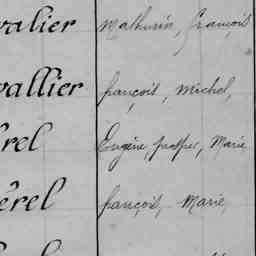 valier Mathurin, François
vallier françois, Michel,
rel Eugène, prosper, Marie
érel françois, Marie,